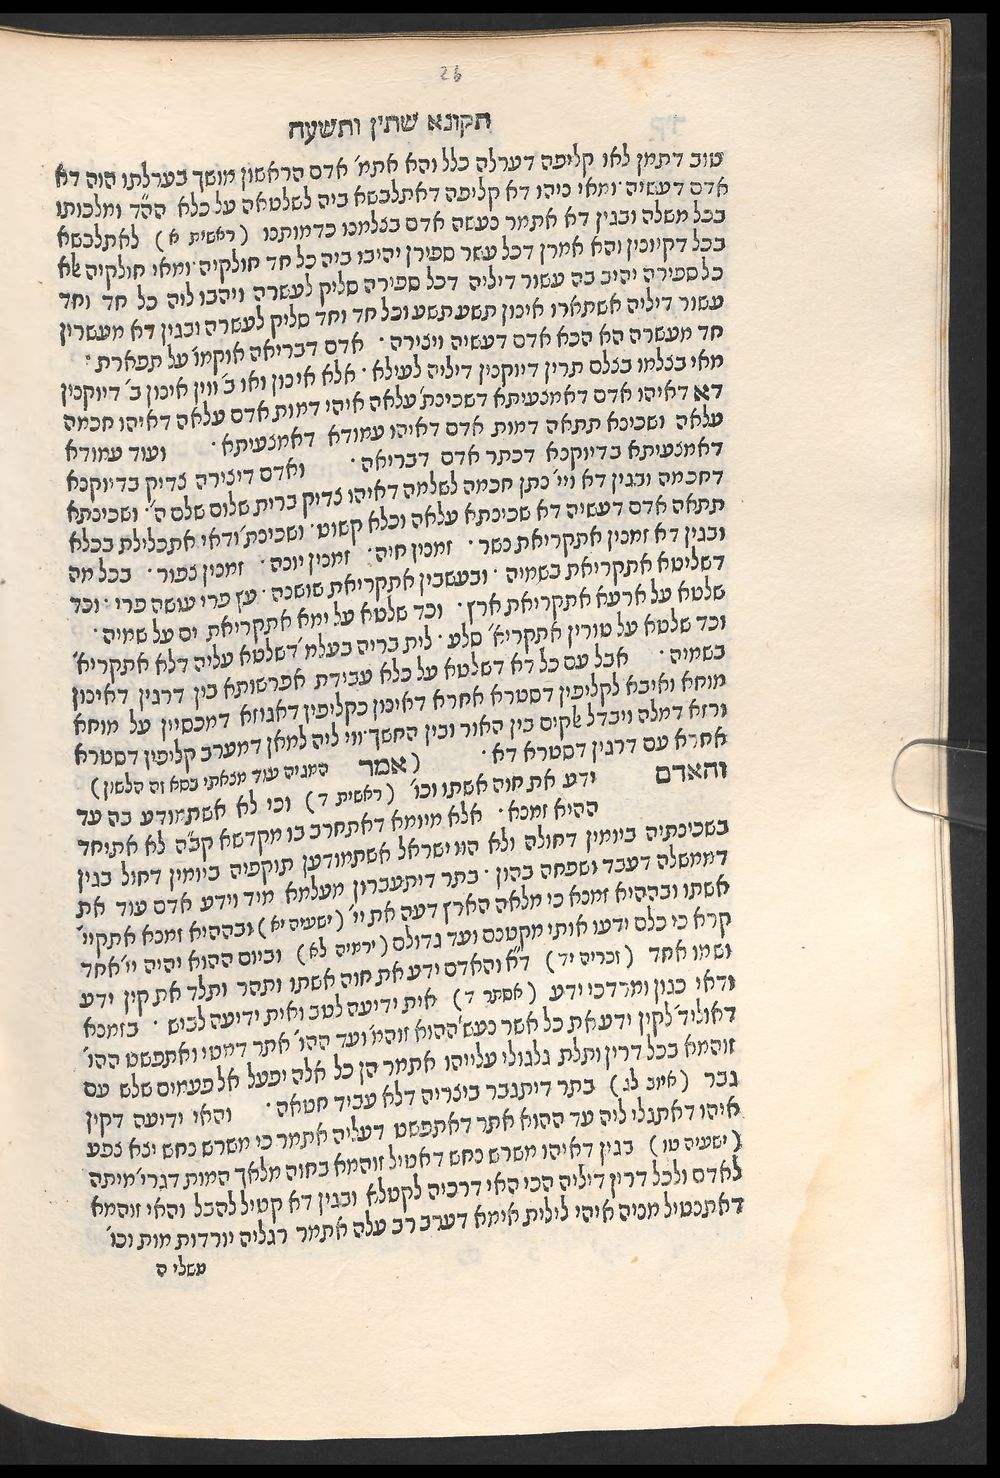 26
תקונא שתין ותשעה
טוב דתמן לאו קליפה דערלה כלל והא אתמ׳ אדם הראשון מושך בערלתו הוה דא
אדם דעשיה ומאי ניהו דא קליפה דאתלבשא ביה לשלטאה על כלא הה״ד ומלכותו
בכל משלה ובגין דא אתמר נעשה אדם בצלמנו כדמותנו (ראשית א) לאתלבשא
בכל דקיוכין והא אמרן דכל עשר ספירן יהיבו ביה כל חד חולקיה ומאי חולקיה אלא
כל ספירה יהיב בה עשור דיליה דכל ספירה סליק לעשרה ויהבו ליה כל חד וחד
עשור דיליה אשתארו אינון תשע תשע וכל חד וחד סליק לעשרה ובגין דא מעשרין
חד מעשרה הא הכא אדם דעשיה ויצירה · אדם דבריאה אוקמו׳ על תפארת :
מאי בצלמו בצלם תרין דיוקנין דיליה לעילא · אלא אינון ואו ב׳ ווין אינון ב׳ דיוקנין
דא דאיהו אדם דאמצעיתא דשכינת׳ עלאה איהי דמות אדם עלאה דאיהו חכמה
עלאה ושכינא תתאה דמות אדם דאיהו עמודא דאמצעיתא · ועוד עמודא
דאמצעיתא בדיוקנא דכתר אדם דבריאה · ואדם דיצירה צדיק בדיוקנא
דחכמה ובגין דא ויי׳ נתן חכמה לשלמה דאיהו צדיק ברית שלום שלם ה׳ · ושכינתא
תתאה אדם דעשיה דא שכינתא עלאה וכלא קשוט · ושכינת׳ ודאי אתכלילת בכלא
ובגין דא זמנין אתקריאת נשר · זמנין חיה · זמנין יונה · זמנין צפור · בכל מה
דשליטא אתקריאת בשמיה · ובעשבין אתקריאת שושנה · עץ פרי עושה פרי · וכד
שלטא על ארעא אתקריאת ארץ · וכד שלטא על ימא אתקריאת ים על שמיה ·
וכד שלטא על טורין אתקריא׳ סלע · לית בריה בעלמ׳ דשלטא עליה דלא אתקריא׳
בשמיה · אבל עם כל דא דשלטא על כלא עבידת אפרשותא בין דרגין דאינון
מוחא ואיבא לקליפין דסטרא אחרא דאינון כקליפין דאגוזא דמכסיין על מוחא
ורזא דמלה ויבדל אלקים בין האור ובין החשך · ווי ליה למאן דמערב קליפין דסטרא
אחרא עם דרגין דסטרא דא · (אמר המגיה עוד מצאתי בסא זה הלשון)
והאדם ידע את חוה אשתו וכו׳ (ראשית ד) וכי לא אשתמודע בה עד
ההיא זמנא · אלא מיומא דאתחרב בו מקדשא קב״ה לא אתיחד
בשכינתיה ביומין דחולה ולא הוו ישראל אשתמודען תוקפיה ביומין דחול בגין
דממשלה דעבד ושפחה בהון · בתר דיתעברון מעלמא מיד וידע אדם עוד את
אשתו ובההיא זמנא כי מלאה הארץ דעה את יי׳ (ישעיה יא) ובההיא זמנא אתקיי׳
קרא כי כלם ידעו אותי מקטנם ועד גדולם (ירמיה לא) וביום ההוא יהיה יי׳ אחד
ושמו אחד (זכריה יד) ד״א והאדם ידע את חוה אשתו ותהר ותלד את קין ידע
ודאי כגון ומרדכי ידע (אסתר ד) אית ידיעה לטב ואית ידיעה לביש · בזמנא
דאוליד׳ לקין ידע את כל אשר נעש׳ ההוא זוהמ׳ ועד ההו׳ אתר דמטי ואתפשט ההו׳
זוהמא בכל דרין ותלת גלגולי עלייהו אתמר הן כל אלה יפעל אל פעמים שלש עם
גבר (איוב לג) בתר דיתגבר ביצריה דלא עביד חטאה · והאי ידיעה דקין
איהו דאתגלי ליה עד ההוא אתר דאתפשט דעליה אתמר כי משרש נחש יצא צפע
(ישעיה טו) בגין דאיהו משרש נחש דאטיל זוהמא בחוה מלאך המות דגרי׳ מיתה
לאדם ולכל דרין דיליה הכי האי דרכיה לקטלא ובגין דא קטיל להבל והאי זוהמא
דאתנטיל מניה איהי לילית אימא דערב רב עלה אתמר רגליה יורדות מות וכו׳
משלי ה